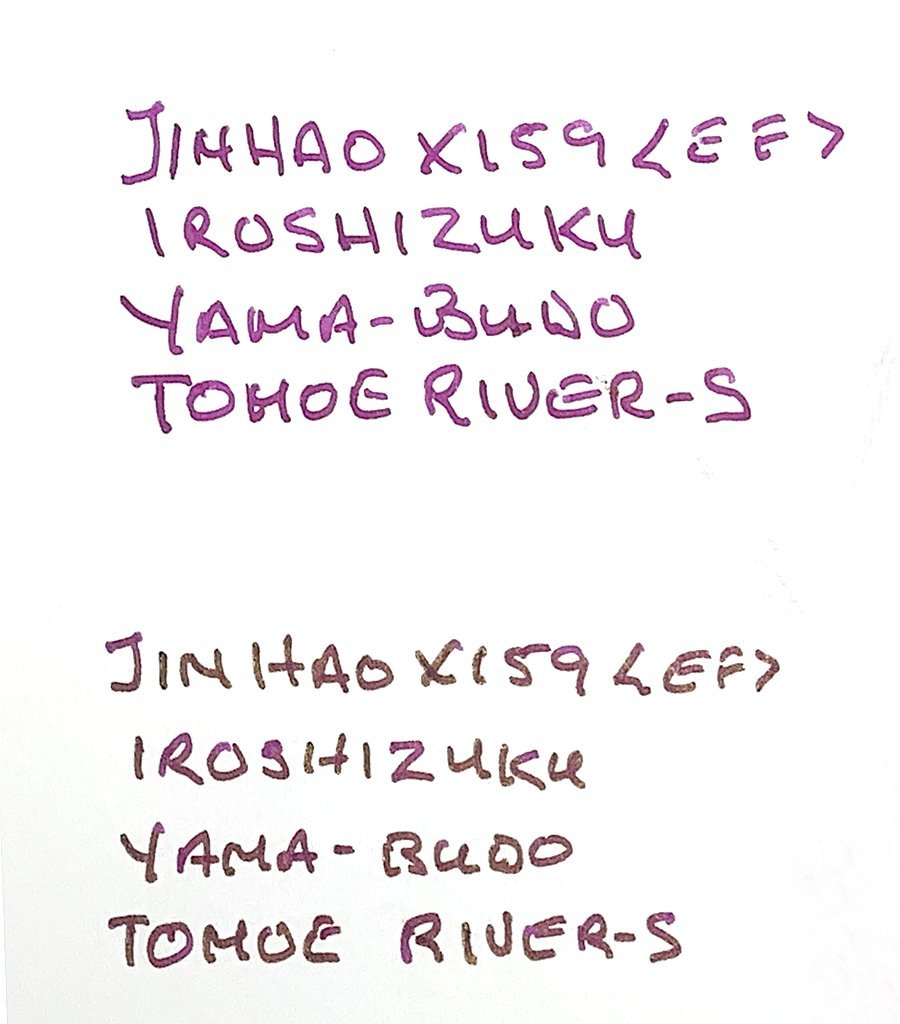 JINHAO X159 <EF>
IROSHIZUKU
YAMA-BUDO
TOMOE RIVER-S
JINHAO X159 <EF>
IROSHIZUKU
YAMA-BUDO
TOMOE RIVER-S